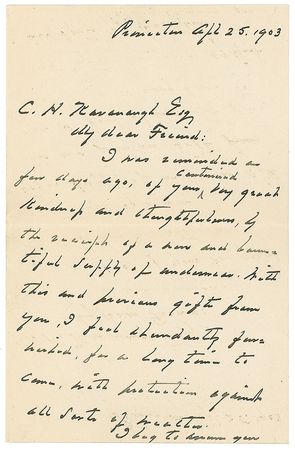 Princeton Apl 25. 1903
C. H. Kavanaugh Esq
My dear Friend:
I was reminded a
few days ago, of your continued very great
kindness and thoughtfulness, by
the receipt of a new and beau-
tiful supply of underwear. With
this and previous gifts from
you, I feel abundantly fur-
nished, for a long time to
come, with protection against
all sorts of weather.
I beg to assure you